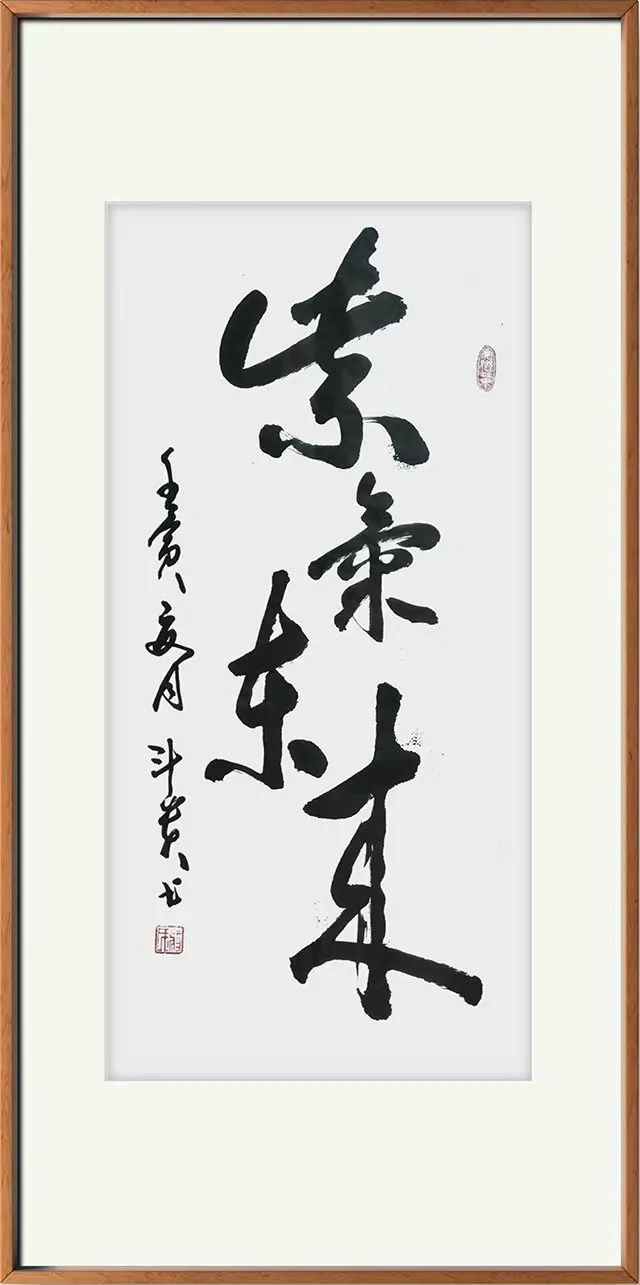 紫氣东来
壬寅夏月斗贵书